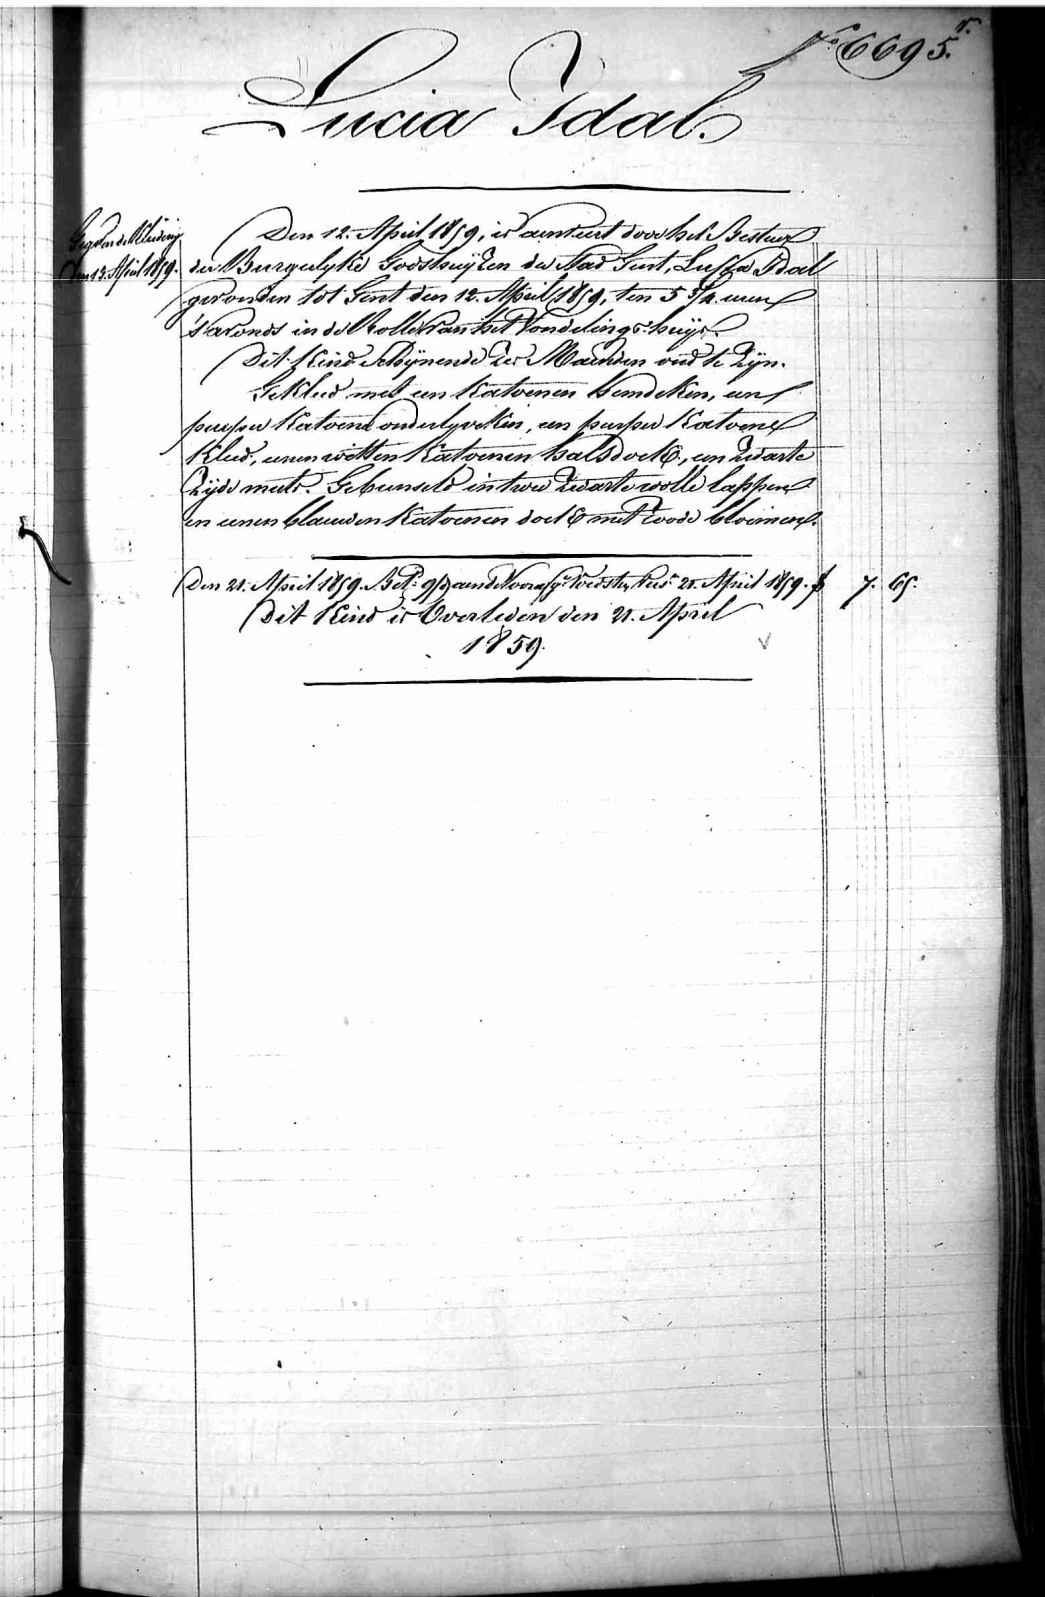 N.° 6695. v.
Lucia Idal.
Gegeven de Kleeding
den 13. April 1859.
Den 12. April 1859, is aenveert door het Bestuer
der Burgelyke Godshuyzen der Stad Gent, Lucia Idal
gevonden tot Gent den 12. April 1859, ten 5 3/4 uren
's avonds in de Rolle van het Vondelings-huys.
Dit Kind schynende zes Maenden oud te zyn.
Gekleed met een Katoenen hemdeken, een
purper Katoene onderlyveken, een purper Katoene
Kleed, eenen witten Katoenen halsdoek, een zwarte
zyde muts. Gebunseld in twee zwarte wolle lappen
en eenen blauwen Katoenen doek met roode bloemen.
Den 21. April 1859. Bet. aende Voedster 21. April 1859. f 7. 65.
Dit Kind is Overleden den 21. April
1859.